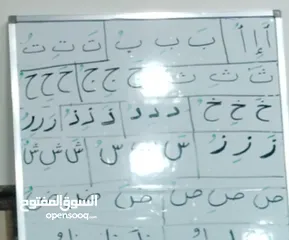 أَ إِ أُ بَ بِ بُ تَ تِ تُ
ثَ ثِ ثُ جَ جِ جُ حَ حِ حُ
خَ خِ خُ دَ دِ دُ ذَ ذِ ذُ رَ رِ رُ
زَ زِ زُ سَ سِ سُ شَ شِ شُ
صَ صِ صُ ضَ ضِ ضُ
السوق المفتوح
opensooq.com